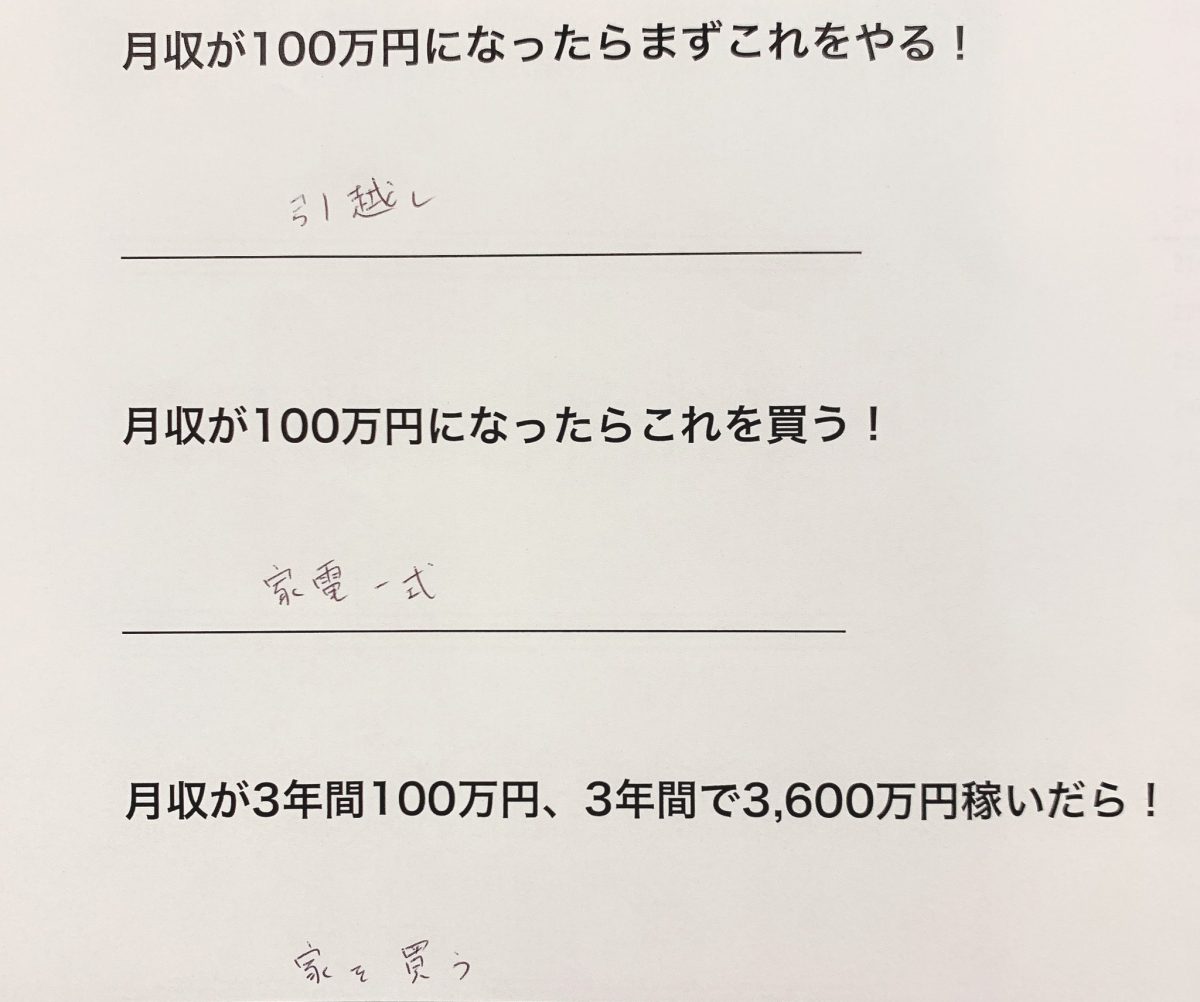 月収が100万円になったらまずこれをやる！
引越し
月収が100万円になったらこれを買う！
家電一式
月収が3年間100万円、3年間で3,600万円稼いだら！
家を買う